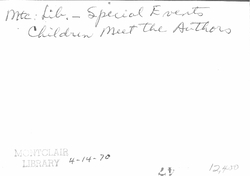 Mtc: Lib. – Special Events
Children Meet the Authors
MONTCLAIR
LIBRARY 4-14-70